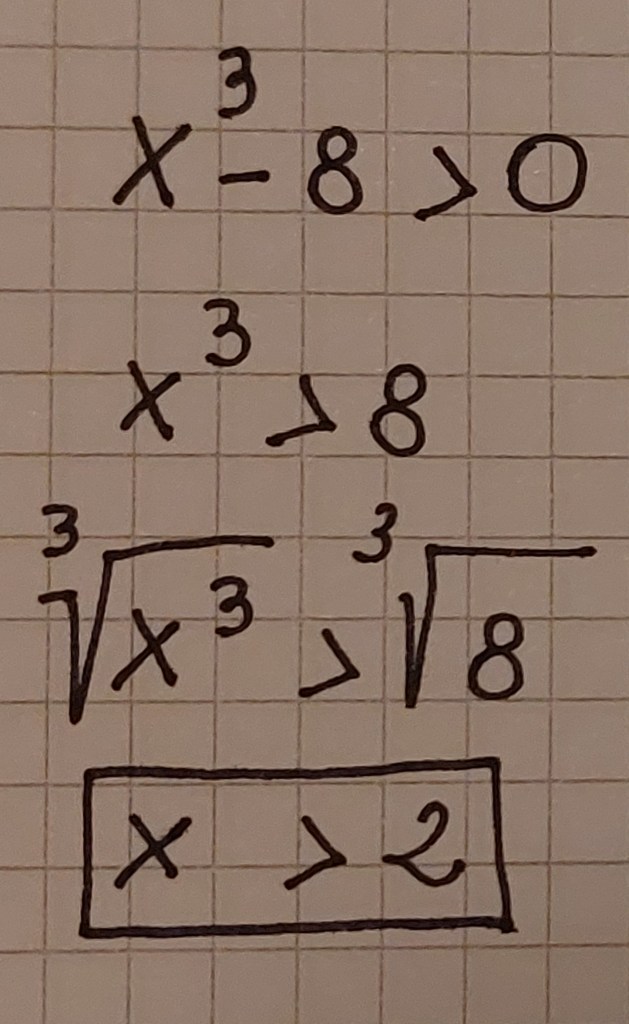 x³ - 8 > 0
x³ > 8
∛x³ > ∛8
x > 2